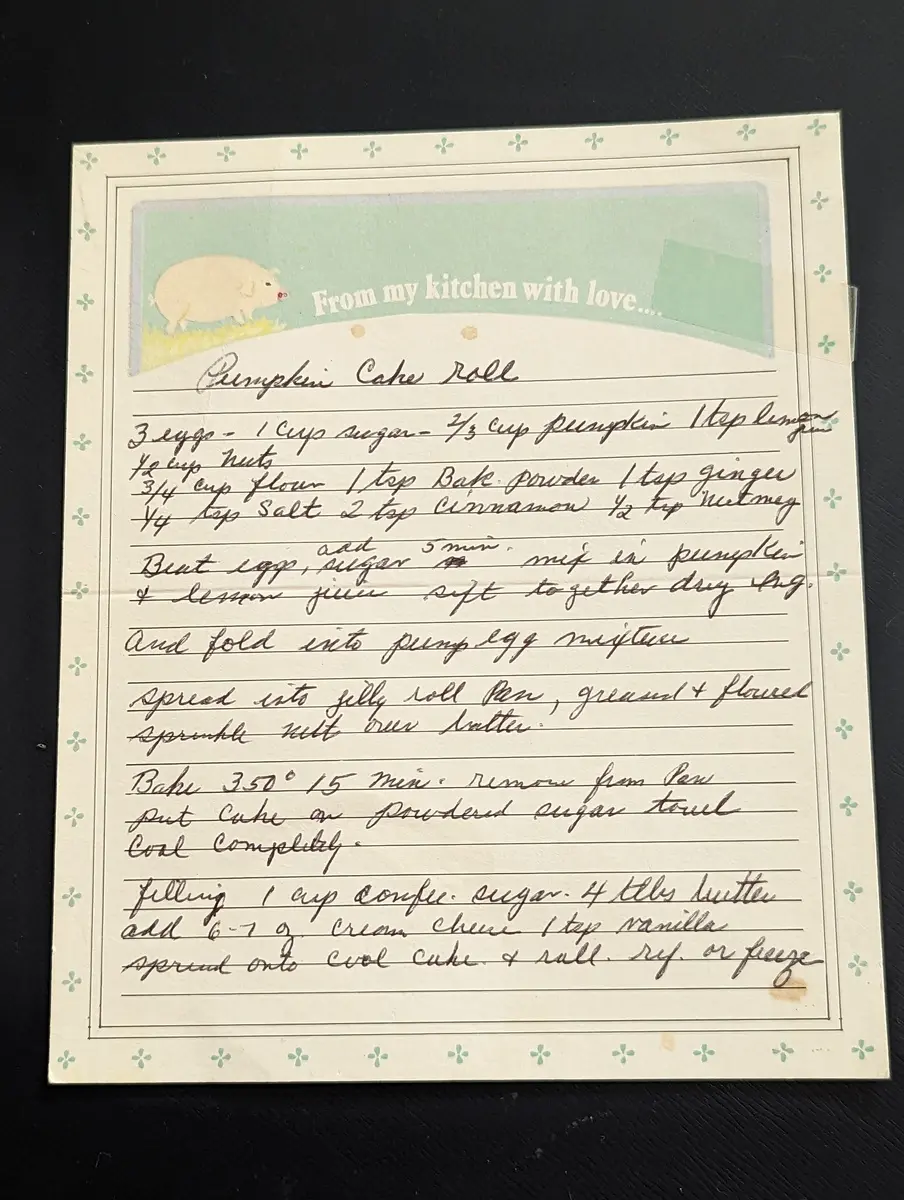 From my kitchen with love....
Pumpkin Cake roll
3 eggs - 1 cup sugar - 2/3 cup pumpkin 1 tsp lemon juice
1/2 cup nuts
3/4 cup flour 1 tsp Bak. powder 1 tsp ginger
1/4 tsp Salt 2 tsp Cinnamon 1/2 tsp Nutmeg
Beat eggs, add sugar 5 min. mix in pumpkin
& lemon juice sift together dry ing.
And fold into pump egg mixture
spread into jelly roll Pan, greased & floured
sprinkle nuts over batter.
Bake 350° 15 min. remove from Pan
put cake on powdered sugar towel
Cool completely.
filling 1 cup confec. sugar. 4 tlbs butter
add 6-7 oz. cream cheese 1 tsp vanilla
spread onto cool cake. & roll. ref. or freeze